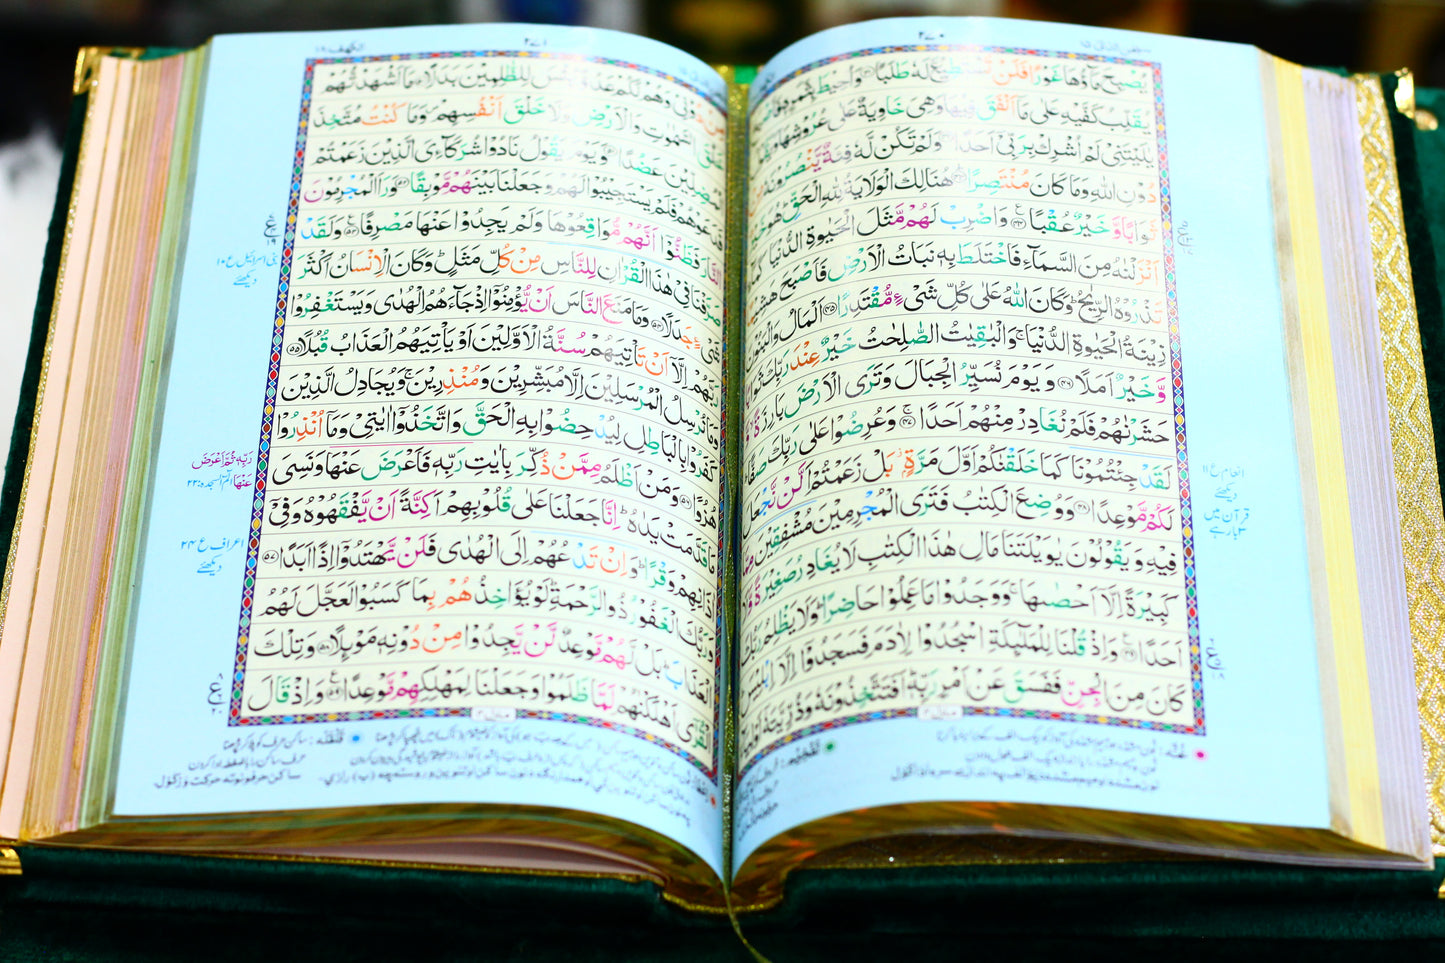 ۲۷۰
يُصْبِحَ مَآؤُهَا غَوْرًا فَلَنْ تَسْتَطِيْعَ لَهٗ طَلَبًا وَاُحِيْطَ بِثَمَرِهٖ فَاَصْبَحَ
يُقَلِّبُ كَفَّيْهِ عَلٰى مَآ اَنْفَقَ فِيْهَا وَهِىَ خَاوِيَةٌ عَلٰى عُرُوْشِهَا وَيَقُوْلُ
يٰلَيْتَنِىْ لَمْ اُشْرِكْ بِرَبِّىْٓ اَحَدًا وَلَمْ تَكُنْ لَّهٗ فِئَةٌ يَّنْصُرُوْنَهٗ مِنْ
دُوْنِ اللّٰهِ وَمَا كَانَ مُنْتَصِرًا هُنَالِكَ الْوَلَايَةُ لِلّٰهِ الْحَقِّ هُوَ خَيْرٌ
ثَوَابًا وَّخَيْرٌ عُقْبًا وَاضْرِبْ لَهُمْ مَّثَلَ الْحَيٰوةِ الدُّنْيَا كَمَآءٍ
اَنْزَلْنٰهُ مِنَ السَّمَآءِ فَاخْتَلَطَ بِهٖ نَبَاتُ الْاَرْضِ فَاَصْبَحَ هَشِيْمًا
تَذْرُوْهُ الرِّيٰحُ وَكَانَ اللّٰهُ عَلٰى كُلِّ شَىْءٍ مُّقْتَدِرًا ﴿۴۵﴾ اَلْمَالُ وَالْبَنُوْنَ
زِيْنَةُ الْحَيٰوةِ الدُّنْيَا وَالْبٰقِيٰتُ الصّٰلِحٰتُ خَيْرٌ عِنْدَ رَبِّكَ ثَوَابًا
وَّخَيْرٌ اَمَلًا وَيَوْمَ نُسَيِّرُ الْجِبَالَ وَتَرَى الْاَرْضَ بَارِزَةً
حَشَرْنٰهُمْ فَلَمْ نُغَادِرْ مِنْهُمْ اَحَدًا وَعُرِضُوْا عَلٰى رَبِّكَ صَفًّا
لَقَدْ جِئْتُمُوْنَا كَمَا خَلَقْنٰكُمْ اَوَّلَ مَرَّةٍۭ بَلْ زَعَمْتُمْ اَلَّنْ نَّجْعَلَ
لَكُمْ مَّوْعِدًا وَوُضِعَ الْكِتٰبُ فَتَرَى الْمُجْرِمِيْنَ مُشْفِقِيْنَ مِمَّا
فِيْهِ وَيَقُوْلُوْنَ يٰوَيْلَتَنَا مَالِ هٰذَا الْكِتٰبِ لَا يُغَادِرُ صَغِيْرَةً وَّلَا
كَبِيْرَةً اِلَّآ اَحْصٰىهَا وَوَجَدُوْا مَا عَمِلُوْا حَاضِرًا وَلَا يَظْلِمُ رَبُّكَ
اَحَدًا وَاِذْ قُلْنَا لِلْمَلٰٓئِكَةِ اسْجُدُوْا لِاٰدَمَ فَسَجَدُوْٓا اِلَّآ اِبْلِيْسَ
كَانَ مِنَ الْجِنِّ فَفَسَقَ عَنْ اَمْرِ رَبِّهٖ اَفَتَتَّخِذُوْنَهٗ وَذُرِّيَّتَهٗٓ اَوْلِيَآءَ
انعام ع ۱۱
دیکھئے
قرآن میں
۳ بار ہے
۲۷۱
الكهف ۱۸
مِنْ دُوْنِىْ وَهُمْ لَكُمْ عَدُوٌّ بِئْسَ لِلظّٰلِمِيْنَ بَدَلًا مَآ اَشْهَدْتُّهُمْ
خَلْقَ السَّمٰوٰتِ وَالْاَرْضِ وَلَا خَلْقَ اَنْفُسِهِمْ وَمَا كُنْتُ مُتَّخِذَ
الْمُضِلِّيْنَ عَضُدًا وَيَوْمَ يَقُوْلُ نَادُوْا شُرَكَآءِىَ الَّذِيْنَ زَعَمْتُمْ
فَدَعَوْهُمْ فَلَمْ يَسْتَجِيْبُوْا لَهُمْ وَجَعَلْنَا بَيْنَهُمْ مَّوْبِقًا وَرَاَ الْمُجْرِمُوْنَ
النَّارَ فَظَنُّوْٓا اَنَّهُمْ مُّوَاقِعُوْهَا وَلَمْ يَجِدُوْا عَنْهَا مَصْرِفًا وَلَقَدْ
صَرَّفْنَا فِىْ هٰذَا الْقُرْاٰنِ لِلنَّاسِ مِنْ كُلِّ مَثَلٍ وَكَانَ الْاِنْسَانُ اَكْثَرَ
شَىْءٍ جَدَلًا وَمَا مَنَعَ النَّاسَ اَنْ يُّؤْمِنُوْٓا اِذْ جَآءَهُمُ الْهُدٰى وَيَسْتَغْفِرُوْا
رَبَّهُمْ اِلَّآ اَنْ تَاْتِيَهُمْ سُنَّةُ الْاَوَّلِيْنَ اَوْ يَاْتِيَهُمُ الْعَذَابُ قُبُلًا ﴿۵۵﴾
وَمَا نُرْسِلُ الْمُرْسَلِيْنَ اِلَّا مُبَشِّرِيْنَ وَمُنْذِرِيْنَ وَيُجَادِلُ الَّذِيْنَ
كَفَرُوْا بِالْبَاطِلِ لِيُدْحِضُوْا بِهِ الْحَقَّ وَاتَّخَذُوْٓا اٰيٰتِىْ وَمَآ اُنْذِرُوْا
هُزُوًا وَمَنْ اَظْلَمُ مِمَّنْ ذُكِّرَ بِاٰيٰتِ رَبِّهٖ فَاَعْرَضَ عَنْهَا وَنَسِىَ
مَا قَدَّمَتْ يَدٰهُ اِنَّا جَعَلْنَا عَلٰى قُلُوْبِهِمْ اَكِنَّةً اَنْ يَّفْقَهُوْهُ وَفِىْٓ
اٰذَانِهِمْ وَقْرًا وَاِنْ تَدْعُهُمْ اِلَى الْهُدٰى فَلَنْ يَّهْتَدُوْٓا اِذًا اَبَدًا ﴿۵۷﴾
وَرَبُّكَ الْغَفُوْرُ ذُو الرَّحْمَةِ لَوْ يُؤَاخِذُهُمْ بِمَا كَسَبُوْا لَعَجَّلَ لَهُمُ
الْعَذَابَ بَلْ لَّهُمْ مَّوْعِدٌ لَّنْ يَّجِدُوْا مِنْ دُوْنِهٖ مَوْئِلًا وَتِلْكَ
الْقُرٰٓى اَهْلَكْنٰهُمْ لَمَّا ظَلَمُوْا وَجَعَلْنَا لِمَهْلِكِهِمْ مَّوْعِدًا وَاِذْ قَالَ
بنی اسرائیل ع ۱۰
دیکھئے
رَبِّهٖ ثُمَّ اَعْرَضَ
عَنْهَا الٓمٓ السجدہ: ۲۲
اعراف ع ۲۴
دیکھئے